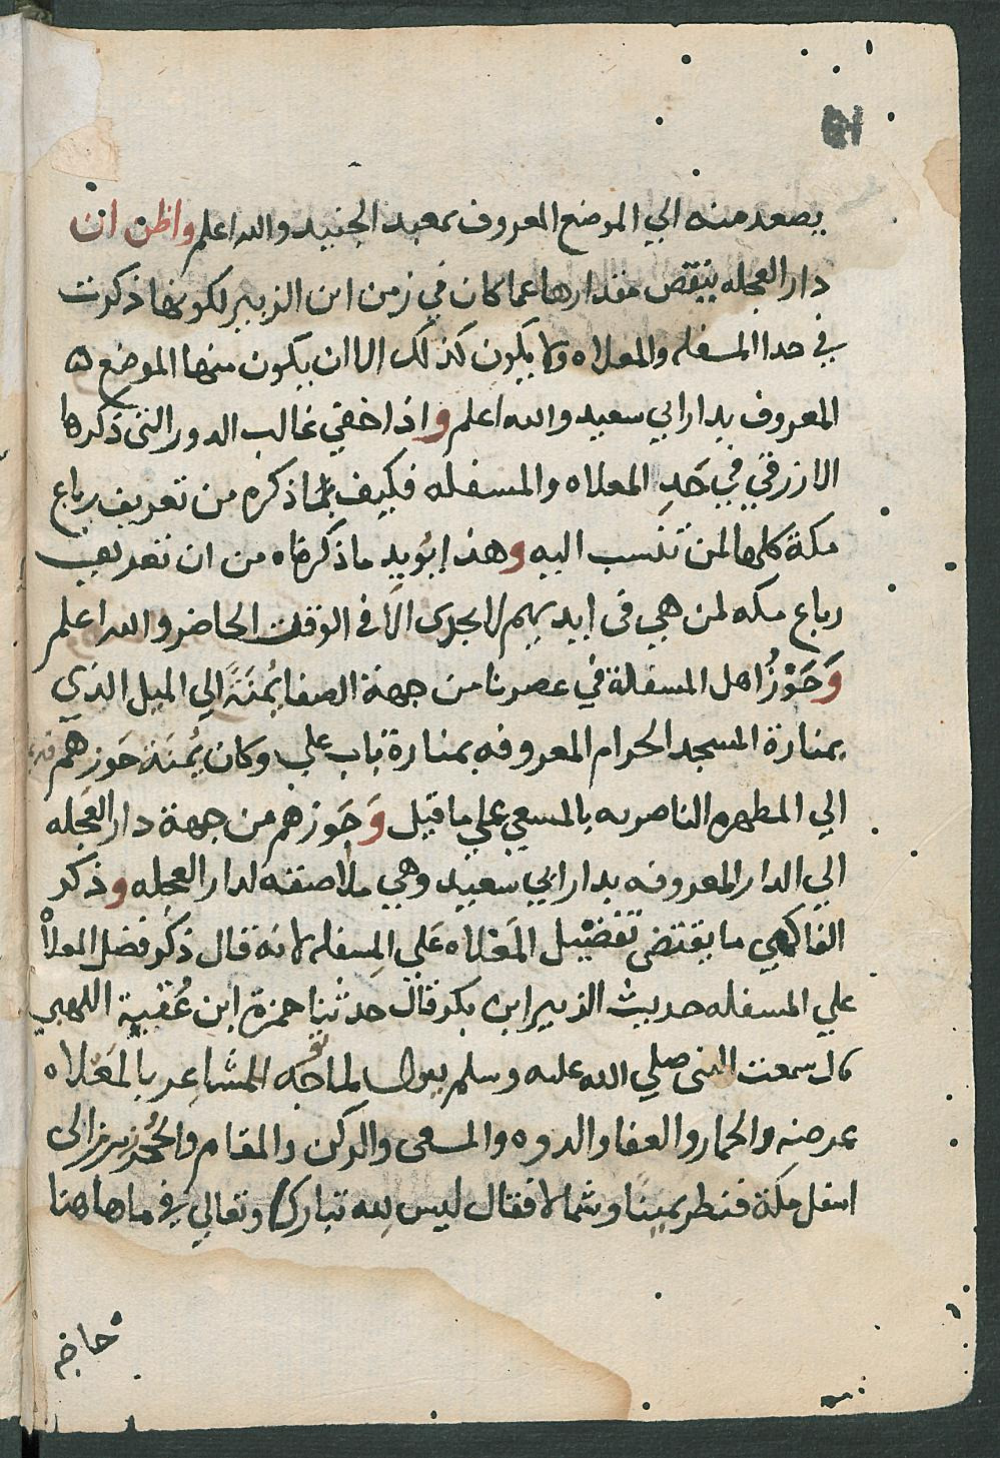 يصعد منه الي الموضع المعروف بمعبد الجنيد والله اعلم واظن ان
دار العجله ينقص مقدارها عما كان في زمن ابن الزبير لكونها ذكرت
في حد المسفله والمعلاه ولا يكون كذلك الا ان يكون منها الموضع
المعروف بدار ابي سعيد والله اعلم واذا خفي غالب الدور التي ذكرها
الازرقي في حَدِ المعلاه والمسفله فكيف بما ذكره من تعريف رباع
مكة كلها لمن تنسب اليه وهذا يؤيد ما ذكرناه من ان تعريف
رباع مكه لمن هي في ايديهم لا يجري الا في الوقت الحاضر والله اعلم
وَحَوْزُ اهل المسفلة في عصرنا من جهة الصفا يُمنَةً الي الميل الذي
بمنارة المسجد الحرام المعروفه بمنارة باب علي وكان يُمنَة حَوزهم
الي المطهره الناصريه بالمسعي علي ما قيل وَحَوزهم من جهة دار العجله
الي الدار المعروفه بدار ابي سعيد وهي ملاصقة لدار العجله وذكر
الفاكهي ما يقتضي تفضيل المَعْلاه عَلي المِسفله لانه قال ذكر فضل المعلاْ
علي المسفله حديث الزبير ابن بكر قال حدثنا حمزة ابن عُقبة اللهبي
قال سمعت النبي صلي الله عليه وسلم يقول المشاعر بالمَعْلاه
عرفه والجمار والصفا والمروه والمسعى والركن والمقام والحُجُر الى
اسفل مكة فنظر يمينًا وشمالا فقال ليس لله تبارك وتعالي في ما هاهنا
حاجه